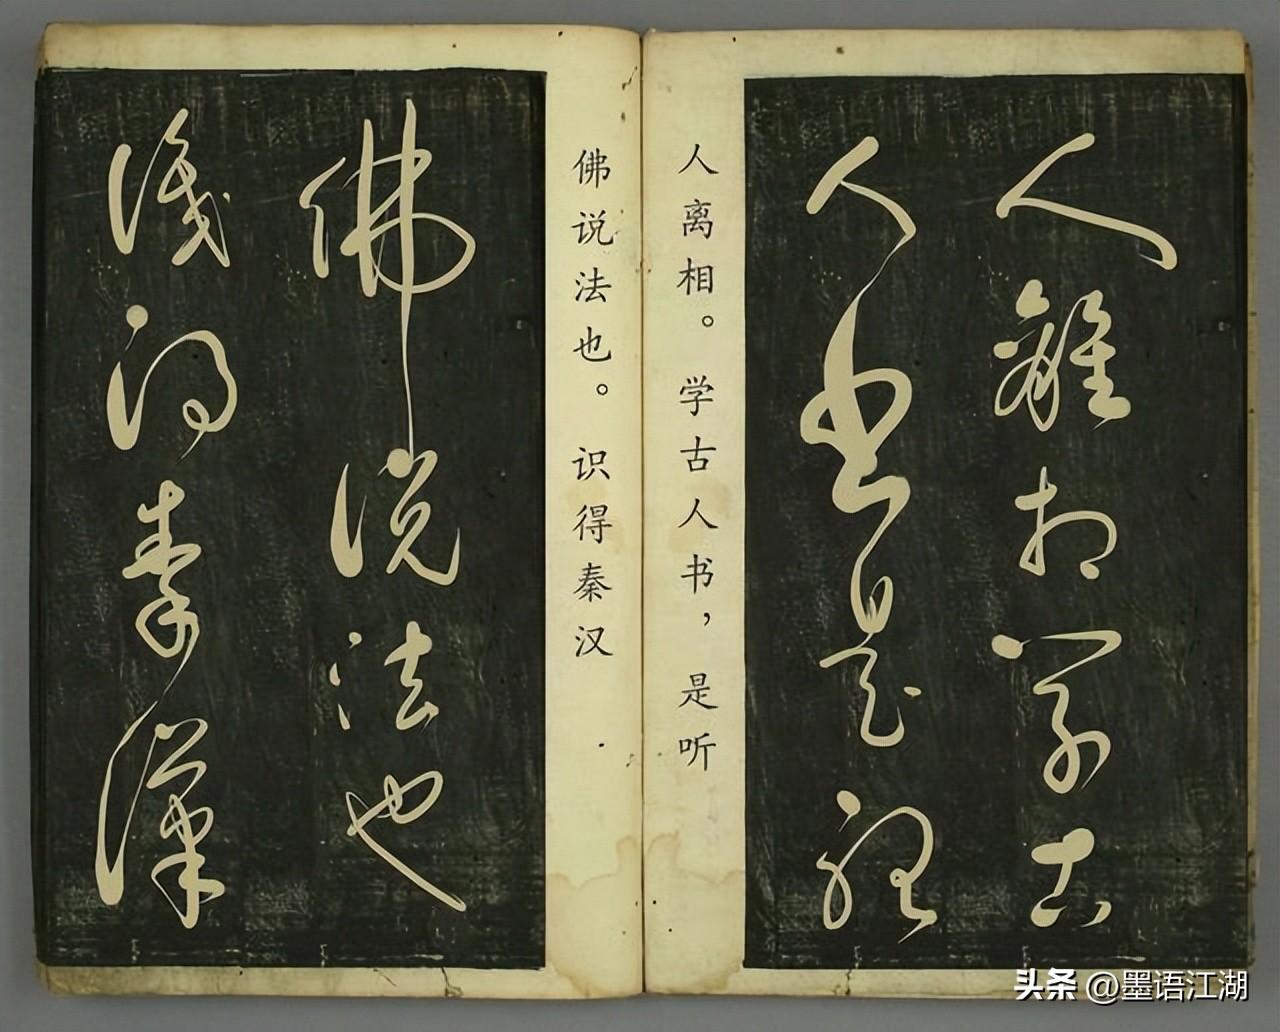 人離相學古
人書是聽
人离相。学古人书，是听
佛説法也
識得秦漢
佛说法也。识得秦汉
头条 @墨语江湖